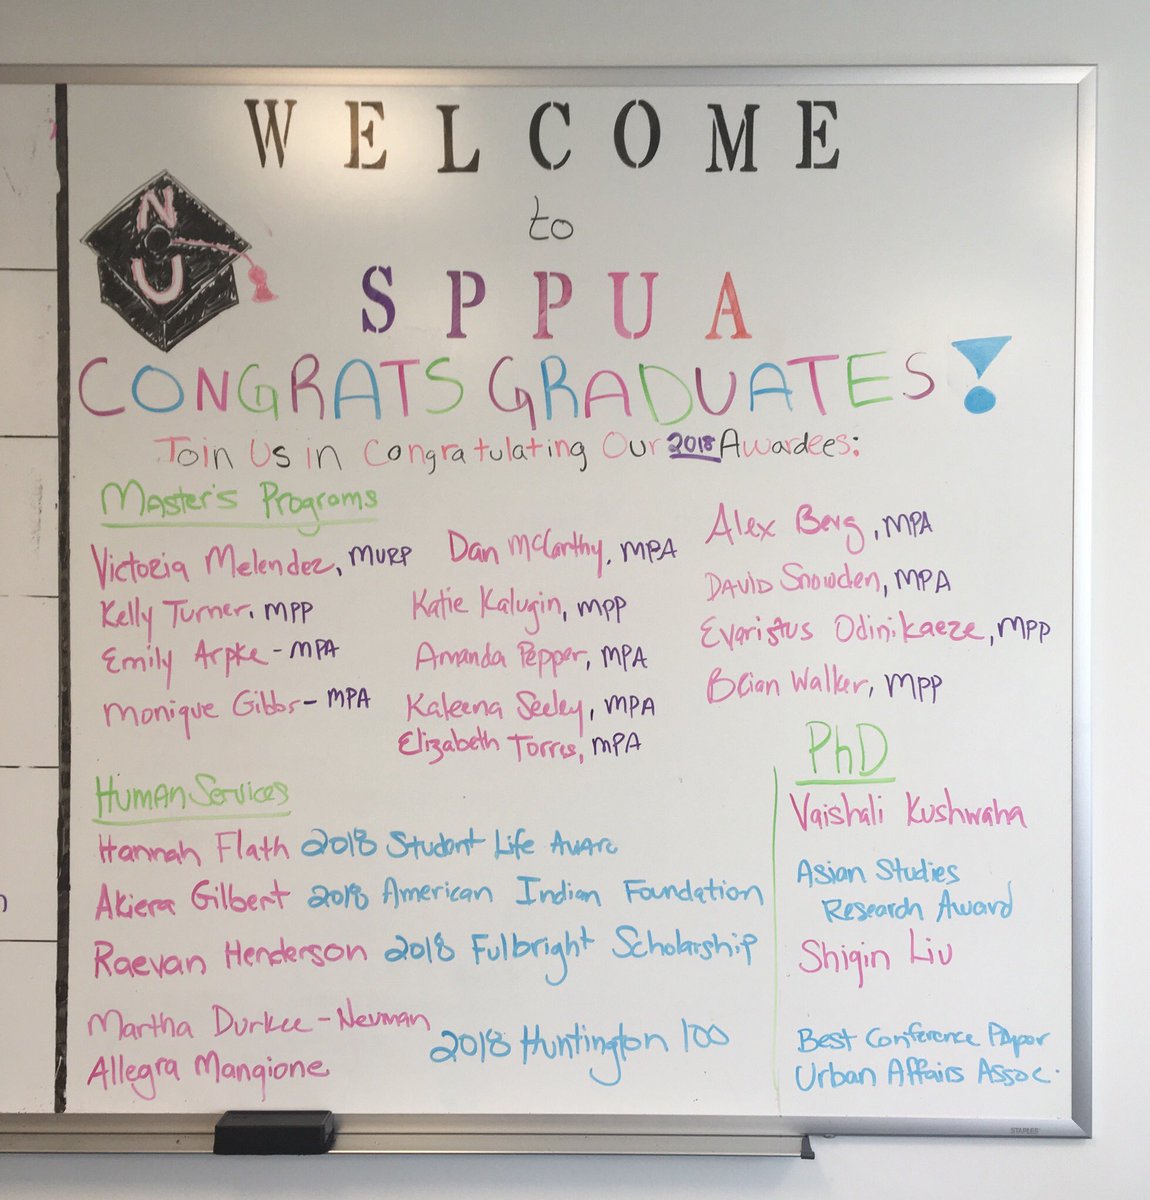 WELCOME
to
SPPUA
N
U
CONGRATS GRADUATES!
Join Us in Congratulating Our 2018 Awardees:
Master's Programs
Victoria Melendez, MURP
Kelly Turner, MPP
Emily Arpke - MPA
Monique Gibbs - MPA
Dan McCarthy, MPA
Katie Kalugin, MPP
Amanda Pepper, MPA
Kaleena Seeley, MPA
Elizabeth Torres, MPA
Alex Berg, MPA
David Snowden, MPA
Evaristus Odinikaeze, MPP
Brian Walker, MPP
Human Services
Hannah Flath 2018 Student Life Award
Akiera Gilbert 2018 American Indian Foundation
Raevan Henderson 2018 Fulbright Scholarship
Martha Durkee-Neuman
Allegra Mangione
2018 Huntington 100
PhD
Vaishali Kushwaha
Asian Studies
Research Award
Shiqin Liu
Best Conference Paper
Urban Affairs Assoc.
STAPLES